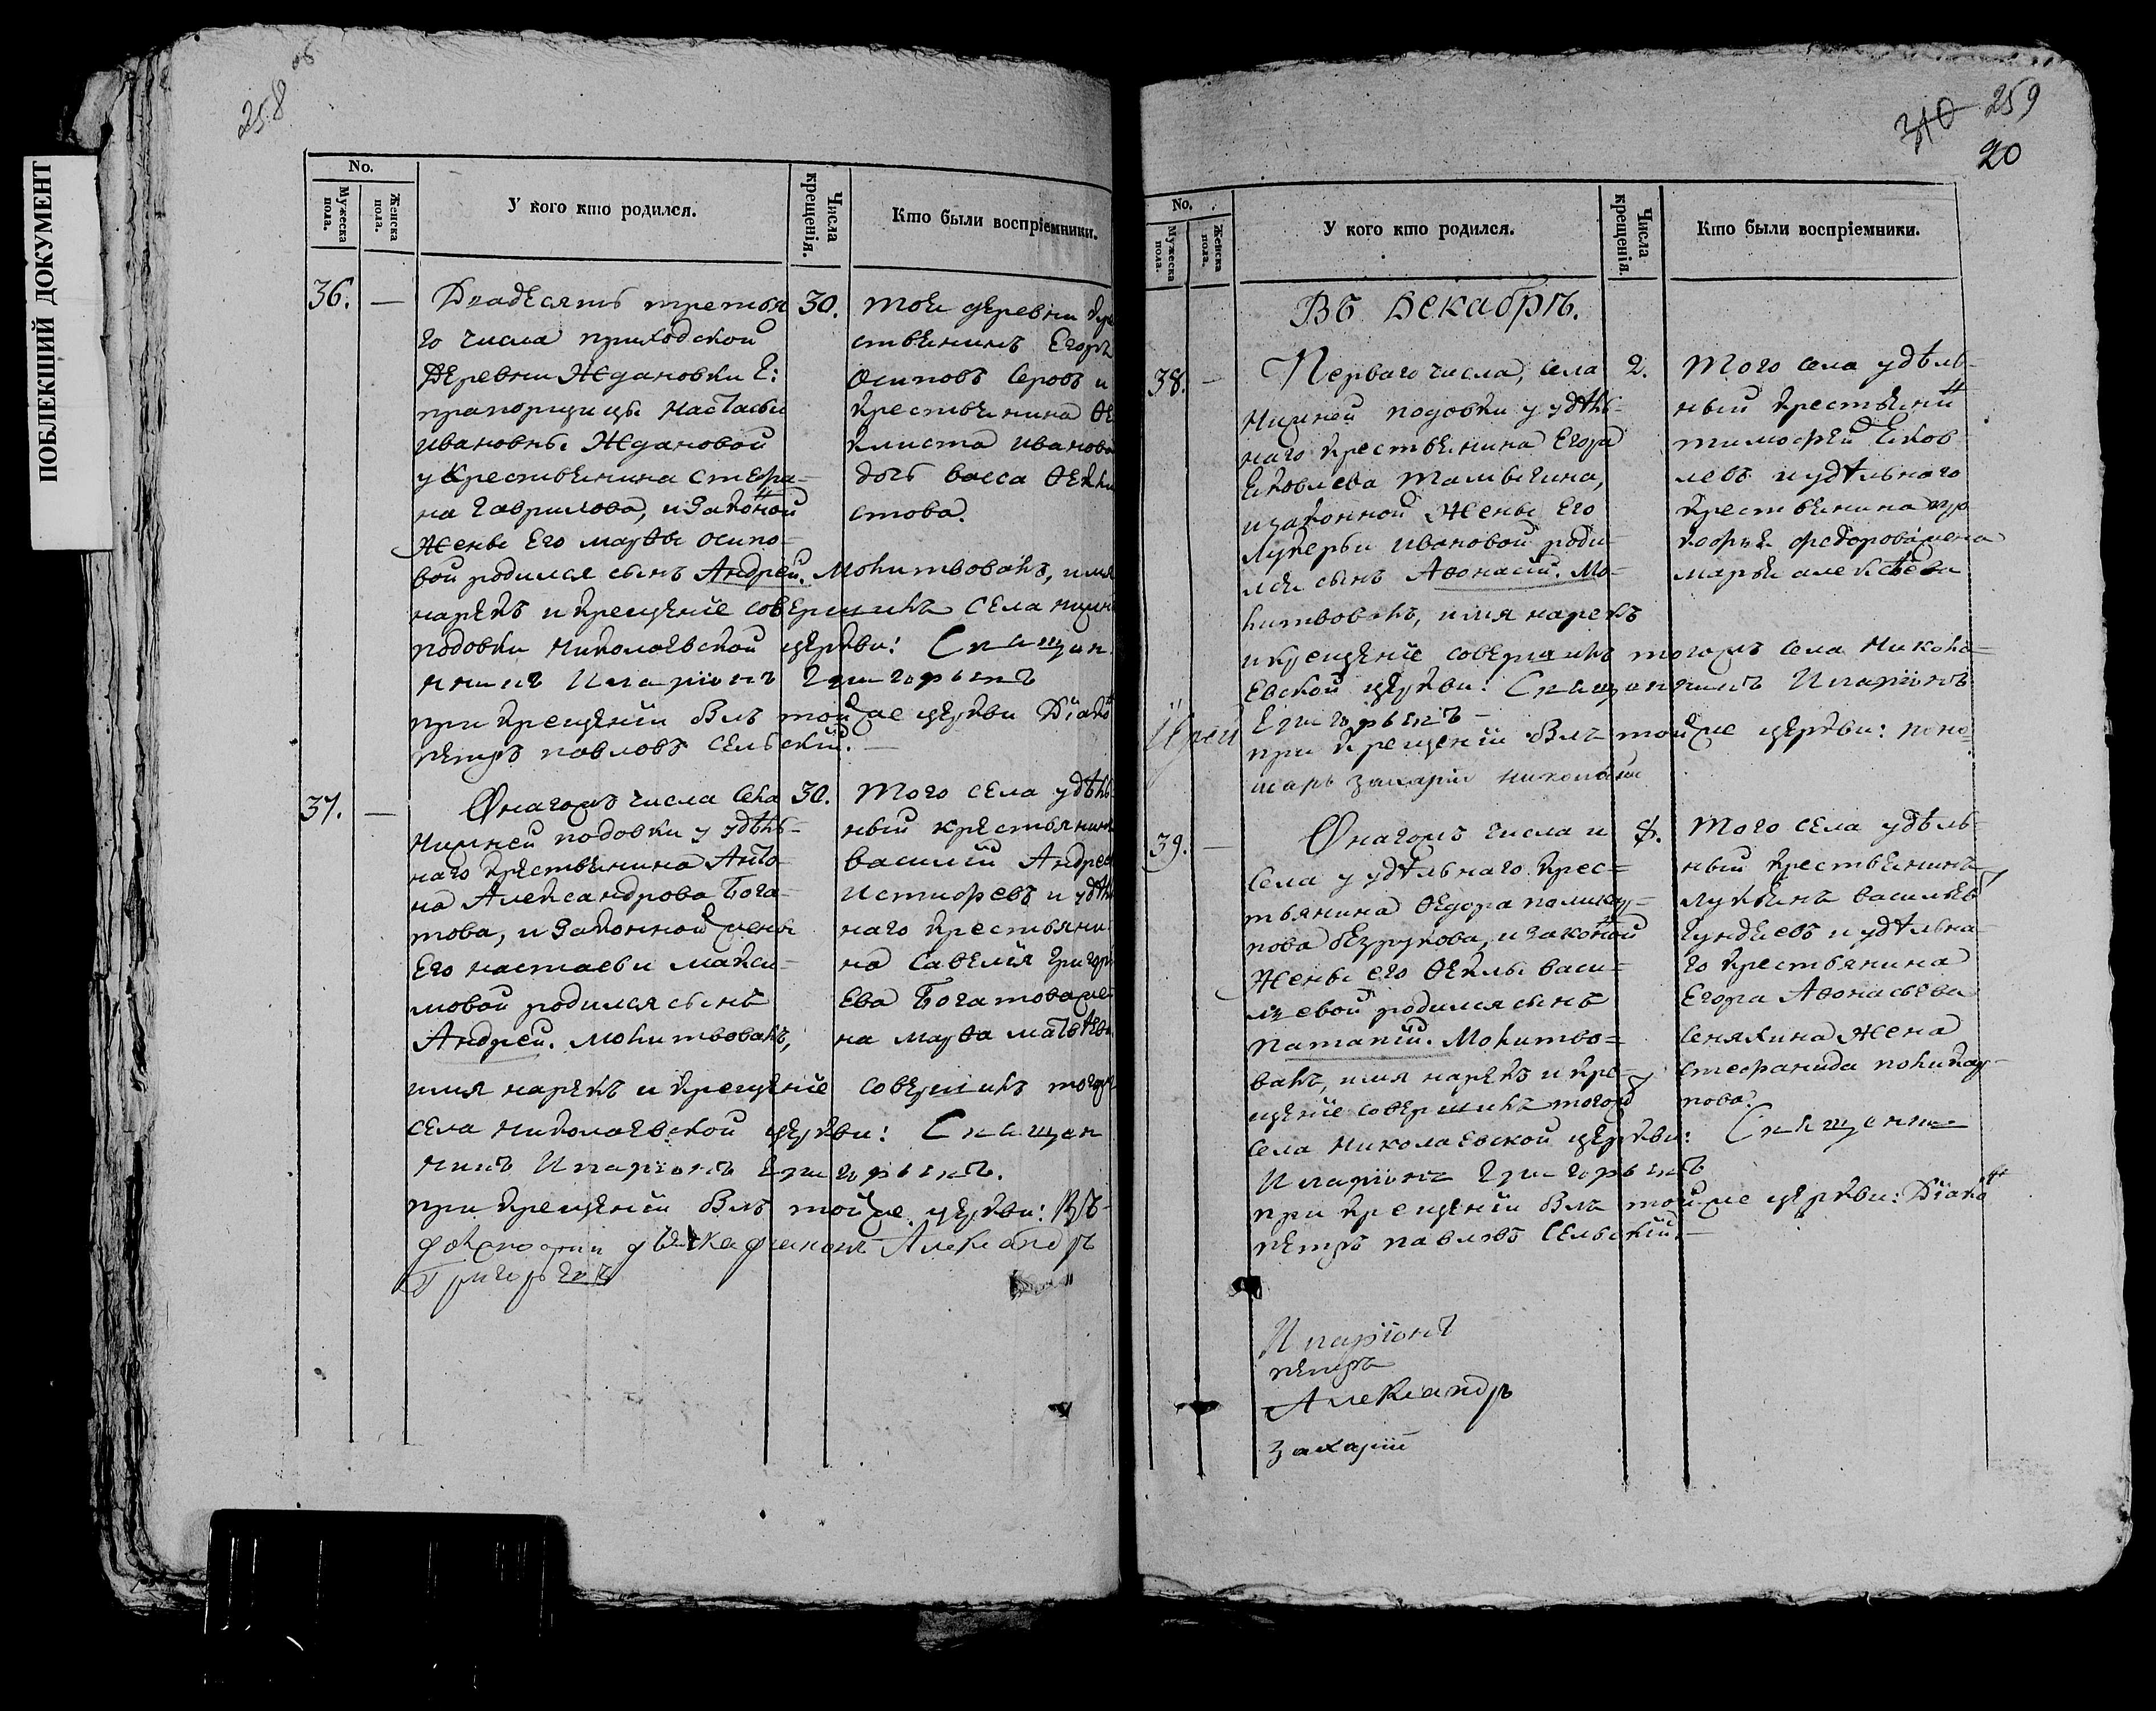 ПОБЛЕКШИЙ ДОКУМЕНТ
258 об
No.
Мужеска пола.
Женска пола.
У кого кто родился.
Числа крещенія.
Кто были воспріемники.
36. — Двадесять третья
го числа приходской
деревни Ждановки Г:
прапорщицы Настасьи
Ивановны Ждановой
у крестьянина Стефа-
на Гаврилова, и законной
жены его Марѳы Осипо-
вой родился сынъ Андрей. Молитвовалъ, имя
нарекъ и крещеніе совершилъ села Нижней
подовки Николаевской церкви: Священ
никъ Иларіонъ Григорьевъ
при крещеніи былъ тойже церкви Діаконъ
Петръ Павловъ Сельскій. —
30. Той деревни кре
стьянинъ Егоръ
Осиповъ Серовъ и
крестьянина Ѳе
клиста Иванова
дочь Васса Ѳекли
стова.
37. — Онагожъ числа села
Нижней подовки у удѣль-
наго крестьянина Анто-
на Александрова Бога-
това, и законной жены
его Настасьи Макси-
мовой родился сынъ
Андрей. Молитвовалъ,
имя нарекъ и крещеніе совершилъ тогожъ
села Николаевской церкви: Священ
никъ Иларіонъ Григорьевъ.
при крещеніи былъ тойже церкви: въ
Александръ
Григорьевъ
30. Того села удѣль-
ный крестьянинъ
Василій Андреевъ
Истифеевъ и удѣль
наго крестьяни
на Савелія Григорь
ева Богатова же
на Марѳа Матвѣева
310 259
20
No.
Мужеска пола.
Женска пола.
У кого кто родился.
Числа крещенія.
Кто были воспріемники.
Въ Декабрѣ.
38. — Перваго числа, села
Нижней подовки у удѣль-
наго крестьянина Егора
Яковлева Талызина,
и законной жены его
Лукерьи Ивановой роди-
лся сынъ Аѳонасій. Мо-
литвовалъ, имя нарекъ
и крещеніе совершилъ тогожъ села Никола-
евской церкви: Священникъ Иларіонъ
Іерей Григорьевъ —
при крещеніи былъ тойже церкви: поно-
марь Захарій Николаевъ
2. Того села удѣль-
ный крестьянинъ
Тимофей Яков-
левъ и удѣльнаго
крестьянина Про
кофья Федорова жена
Марья Алексѣева
39. — Онагожъ числа и
села у удѣльнаго крес-
тьянина Ѳедора Полика-
пова Безрукова, и законной
жены его Ѳеклы Васи-
льевой родился сынъ
Патапій. Молитво-
валъ, имя нарекъ и кре-
щеніе совершилъ тогожъ
села Николаевской церкви: Священникъ
Иларіонъ Григорьевъ
при крещеніи былъ тойже церкви: Діаконъ
Петръ Павловъ Сельскій. —
8. Того села удѣль-
ный крестьянинъ
Лукьянъ Васильевъ
Гундяевъ и удѣльна-
го крестьянина
Егора Аѳонасьева
Сенякина жена
Стефанида Поликар-
пова.
Иларіонъ
Петръ
Александръ
Захарій